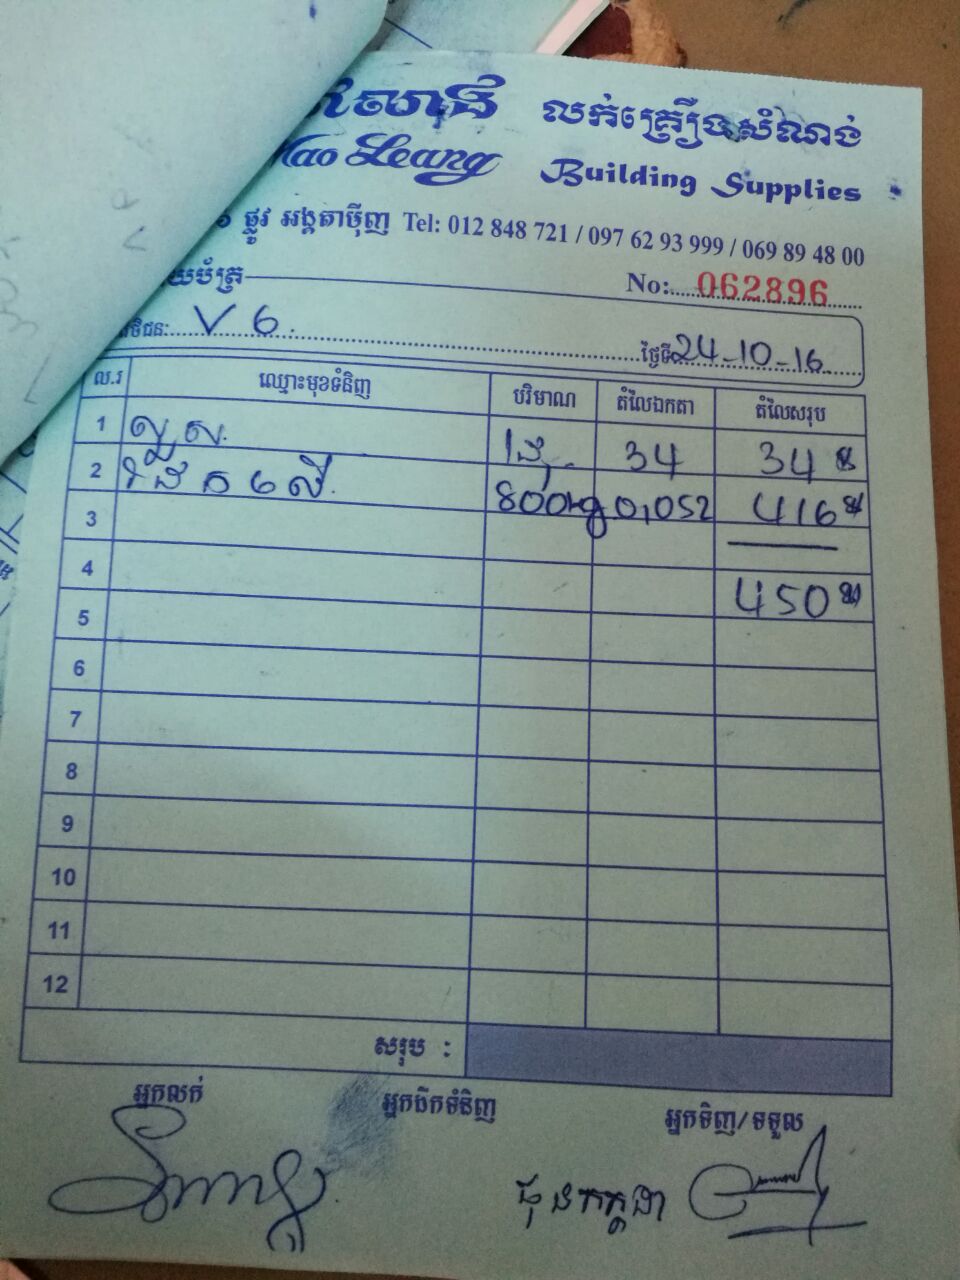 លាង លក់គ្រឿងសំណង់
Hao Leang Building Supplies
ផ្លូវ អង្គតាម៉ិញ Tel: 012 848 721 / 097 62 93 999 / 069 89 48 00
យប័ត្រ No: 062896
ថិជន: V 6. ថ្ងៃទី 24-10-16
ល.រ ឈ្មោះមុខទំនិញ បរិមាណ តំលៃឯកតា តំលៃសរុប
1 លួស 34 34
2 800kg 0,052 416
3
4 450
5
6
7
8
9
10
11
12
សរុប :
អ្នកលក់ អ្នកដឹកទំនិញ អ្នកទិញ/ទទួល